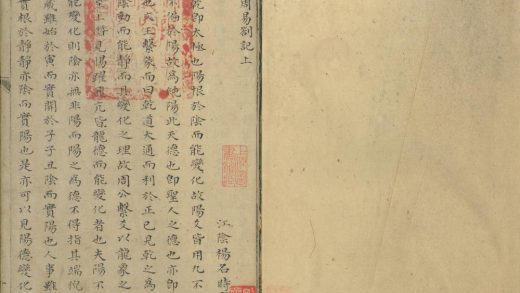 周易劄記上
江陰楊名時
乾即太極也陽根於陰而能變化故陽爻皆用九不
偏於陽故為純陽此天德也即聖人之德也亦即
也文王繫彖而曰乾道大通而利於正已見乾之為
陰動而能靜而具變化之理故周公繫爻以龍象之
至上潛見惕躍飛亢皆龍德而能變化者也夫陽不
能變化則陰亦無非陽而陽之為德不得指其端倪
歲雖始於寅而實開於子子丑陰而實陽也人事雖
實根於靜靜亦陰而實陽也是亦可以見陽德變化